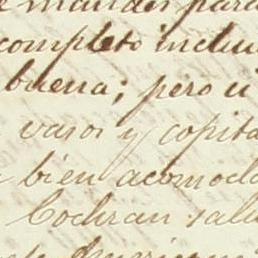 e manden para
completo inclu
buena; pero u
vasos y copita
bien acomoda
Cochran salu